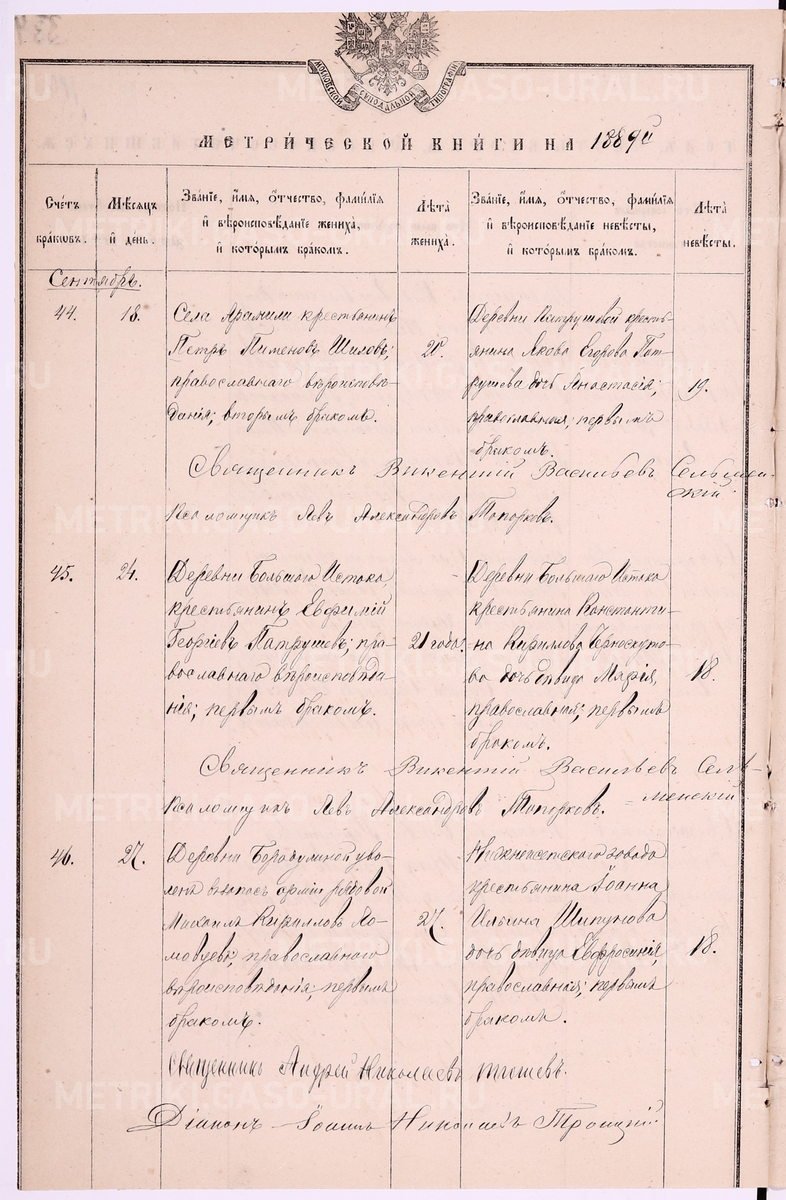 334
МОСКОВСКОЙ СѴНОДАЛЬНОЙ ТИПОГРАФІИ
МЕТРИ́ЧЕСКОЙ КНИ́ГИ НА 1889й
Сче́тъ бра́ковъ.
Мѣ́сяцъ и҆ де́нь.
Зва́нїе, и҆́мя, ѻ҆́тчество, фами́лїя и҆ вѣроисповѣ́данїе жениха̀, и҆ кото́рымъ бра́комъ.
Лѣ́та жениха̀.
Зва́нїе, и҆́мя, ѻ҆́тчество, фами́лїя и҆ вѣроисповѣ́данїе невѣ́сты, и҆ кото́рымъ бра́комъ.
Лѣ́та невѣ́сты.
Сентябрь.
44.
18.
Села Арамили крестьянинъ
Петръ Пименовъ Шиловъ,
православнаго вѣроисповѣ-
данія; вторымъ бракомъ.
Деревни Патрушевой кресть-
янина Якова Егорова Пат-
рушева дочь Анастасія;
православная, первымъ
бракомъ.
19.
Священникъ Викентій Васильевъ
Псаломщикъ Левъ Александровъ Топорковъ.
45.
24.
Деревни Большаго Истока
крестьянинъ Евфимій
Георгіевъ Патрушевъ; пра-
вославнаго вѣроисповѣда-
нія; первымъ бракомъ.
21 года.
Деревни Большаго Истока
крестьянина Константи-
на Кириллова Черноскуто-
ва дочь дѣвица Марія,
православная; первымъ
бракомъ.
18.
Священникъ Викентій Васильевъ
Псаломщикъ Левъ Александровъ Топорковъ.
46.
27.
Деревни Бородулиной уво-
ленъ въ запасъ арміи рядовой
Михаилъ Кирилловъ
православнаго
вѣроисповѣданія; первымъ
бракомъ.
27.
Нижнеисетскаго завода
крестьянина Іоанна
Ильина Шипунова
дочь дѣвица Евфросинія,
православная; первымъ
бракомъ.
18.
Священникъ Андрей Николаевъ
Діаконъ Іоаннъ Николаевъ Троицкій
METRIKI.GASO-URAL.RU